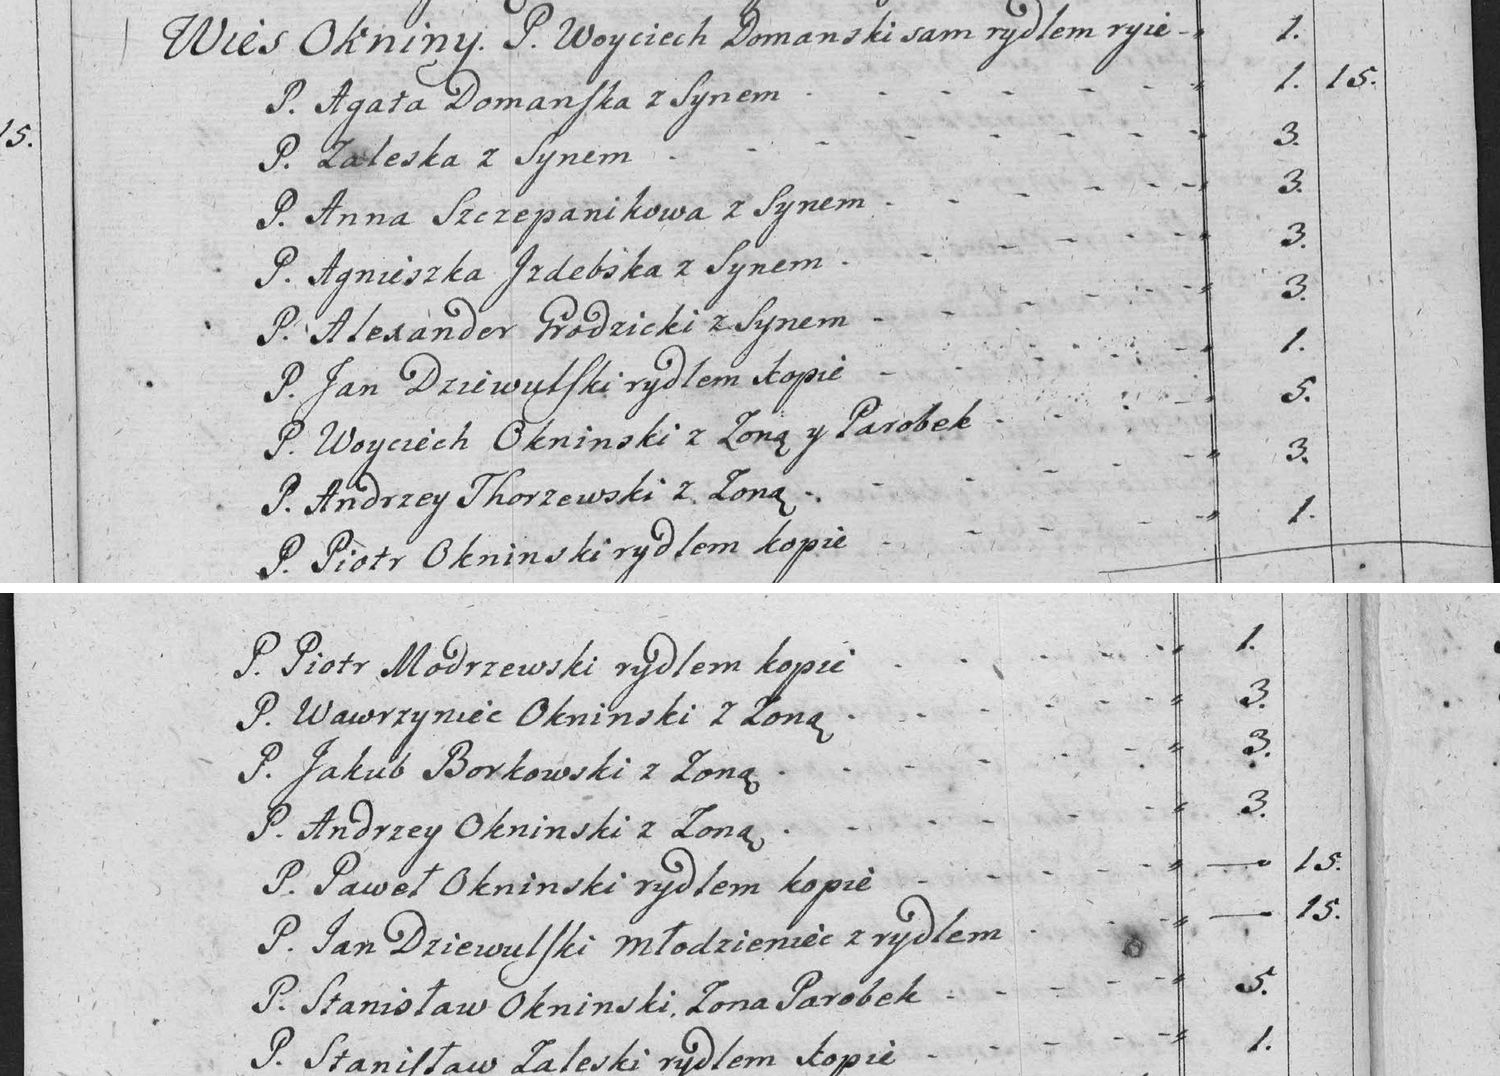 15.
Wieś Okniny. P. Woyciech Domanski sam rydlem ryie - „ 1.
P. Agata Domanſka z Synem - - - - - „ 1. 15.
P. Zaleska z Synem - - - - - „ 3.
P. Anna Szczepanikowa z Synem - - - - - „ 3.
P. Agnieszka Jzdebska z Synem - - - - - „ 3.
P. Alexander Grodzicki z Synem - - - - - „ 3.
P. Jan Dziewulſki rydlem kopie - - - - - „ 1.
P. Woyciech Okninski z Zoną y Parobek - - - - „ 5.
P. Andrzey Thorzewski z Zoną - - - - - „ 3.
P. Piotr Okninski rydlem kopie - - - - - „ 1.
P. Piotr Modrzewski rydlem kopie - - - - - „ 1.
P. Wawrzyniec Okninski z Zoną - - - - - „ 3.
P. Jakub Borkowski z Zoną - - - - - „ 3.
P. Andrzey Okninski z Zoną - - - - - „ 3.
P. Paweł Okninski rydlem kopie - - - - - „ — 15.
P. Jan Dziewulſki młodzieniec z rydlem - - - - „ — 15.
P. Stanisław Okninski, Zona Parobek - - - - - „ 5.
P. Staniſław Zaleski rydlem kopie - - - - - „ 1.